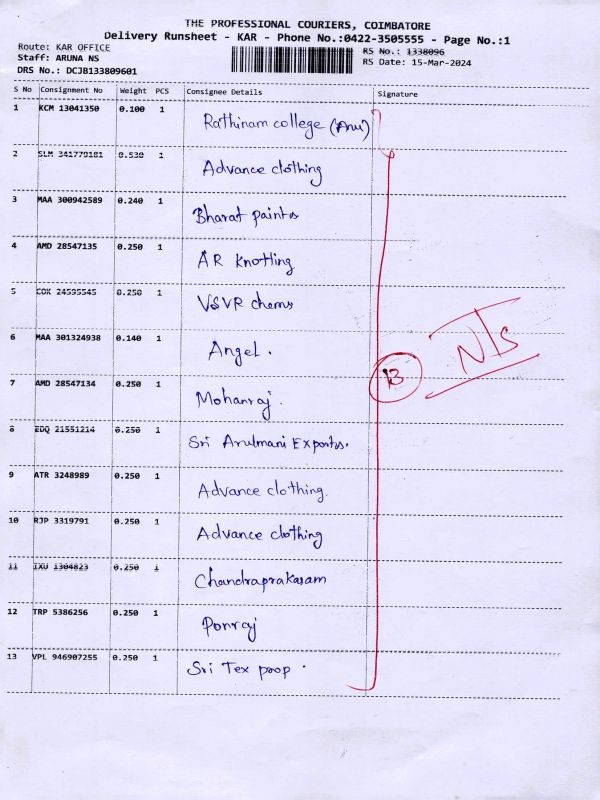 THE PROFESSIONAL COURIERS, COIMBATORE
Delivery Runsheet - KAR - Phone No.:0422-3505555 - Page No.:1
Route: KAR OFFICE
Staff: ARUNA NS
DRS No.: DCJB133809601
RS No.: 1338096
RS Date: 15-Mar-2024
S No Consignment No Weight PCS Consignee Details Signature
1 KCM 13041350 0.100 1 Rathinam college (Anu)
2 SLM 341779181 0.530 1 Advance clothing
3 MAA 300942589 0.240 1 Bharat paints
4 AMD 28547135 0.250 1 AR Knotting
5 24595545 0.250 1 VSVR chems
6 MAA 301324938 0.140 1 Angel.
7 AMD 28547134 0.250 1 Mohanraj.
8 EDQ 21551214 0.250 1 Sri Arulmani Exports.
9 ATR 3248989 0.250 1 Advance clothing.
10 RJP 3319791 0.250 1 Advance clothing
11 IXU 1304823 0.250 1 Chandraprakasam
12 TRP 5386256 0.250 1 Ponraj
13 VPL 946907255 0.250 1 Sri Tex prop.
13
NTs